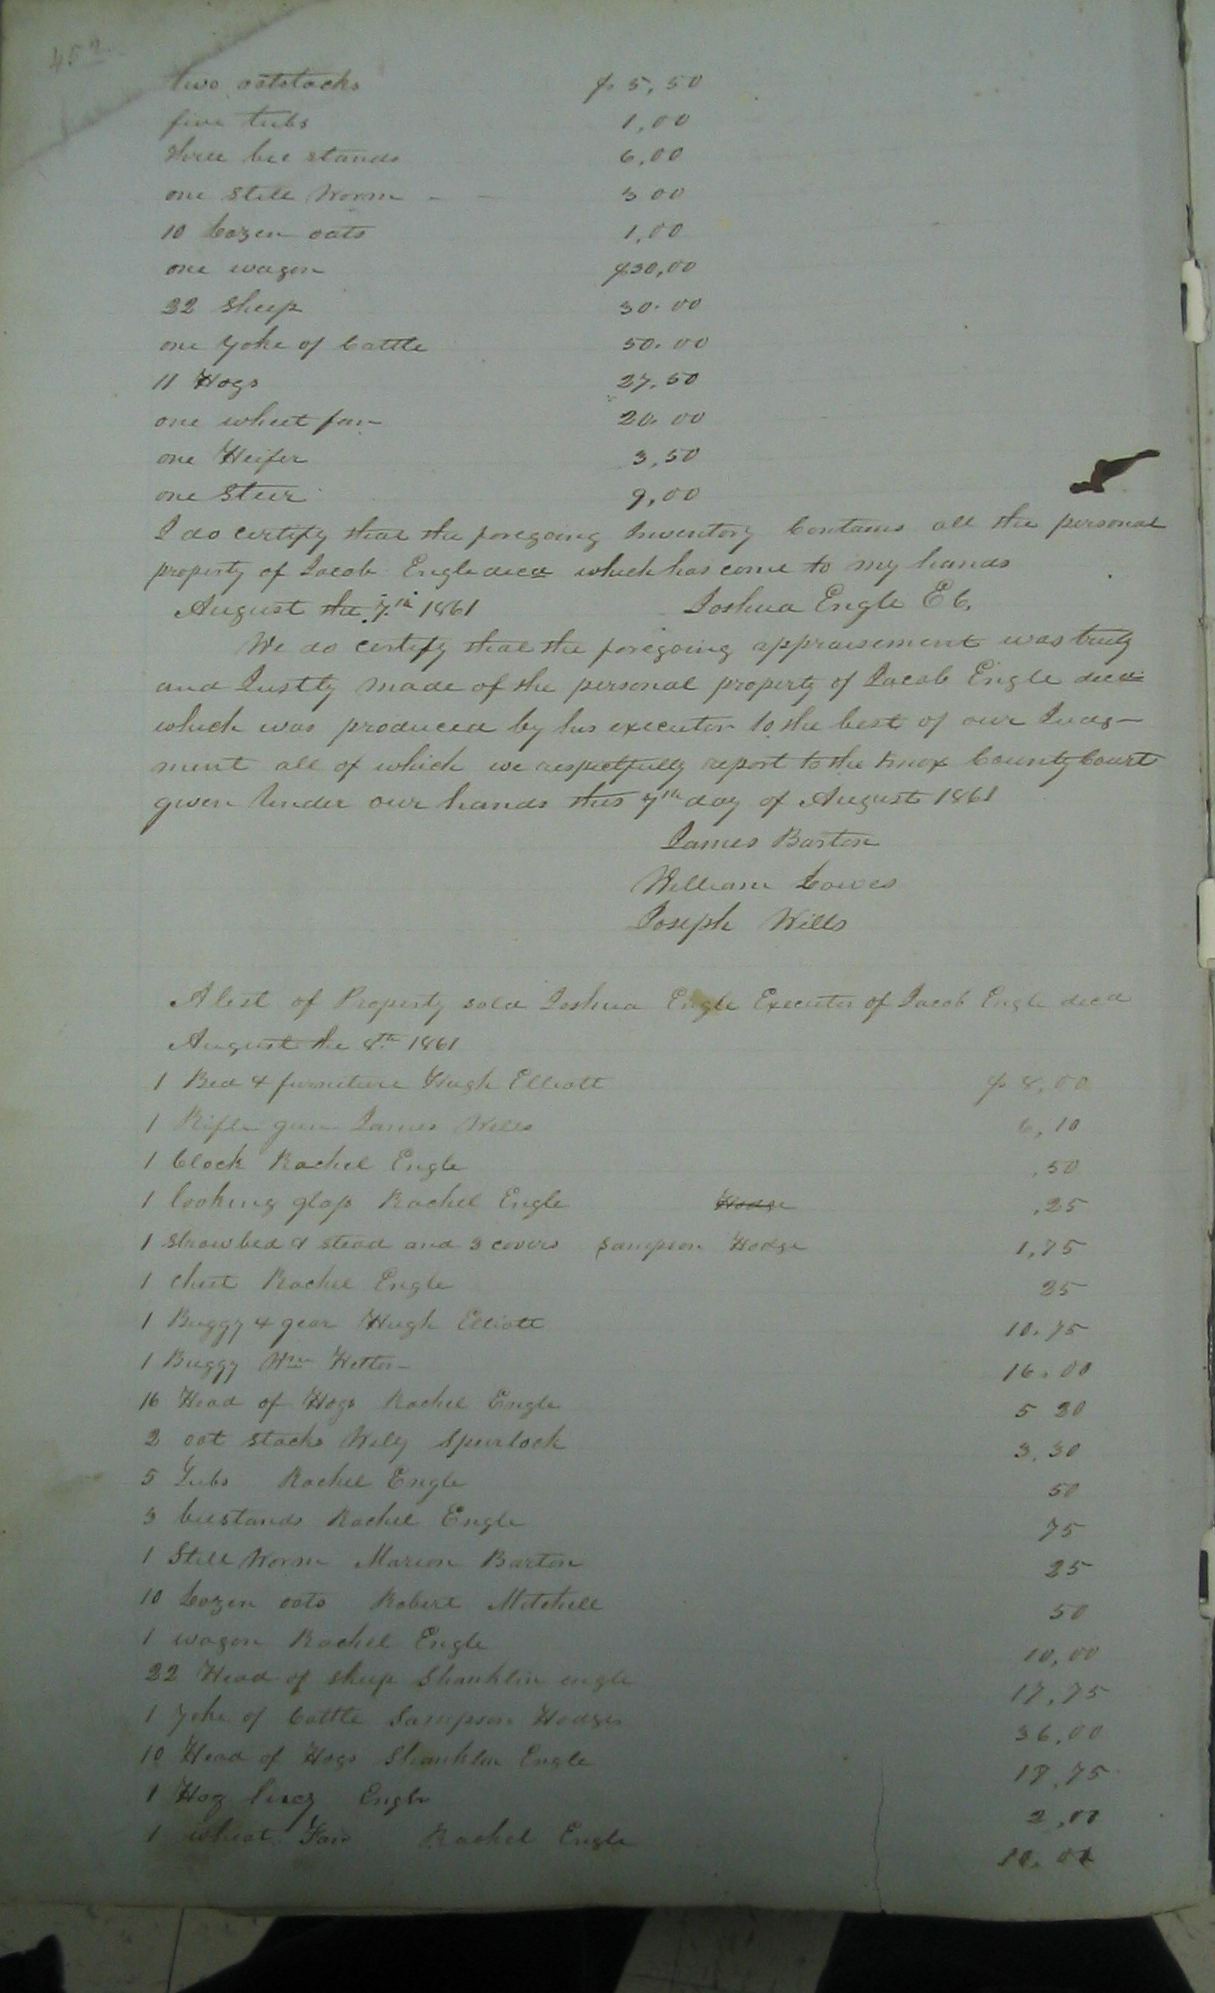 452
two oatstacks $5,50
five tubs 1,00
three bee stands 6,00
one Still Worm - - 3 00
10 Dozen oats 1,00
one wagon $30,00
22 Sheep 30.00
one yoke of Cattle 50.00
11 Hogs 27.50
one wheet fan 20.00
one Heifer 3,50
one Steer 9,00
I do certify that the foregoing Inventory Contains all the personal
property of Jacob Engle decd which has come to my hands
August the 7th 1861 Joshua Engle
We do certify that the foregoing appraisement was truly
and Justly made of the personal property of Jacob Engle decd
which was produced by his executor to the best of our Judg-
ment all of which we respectfully report to the Knox County Court
given under our hands this 7th day of August 1861
James Barton
William
Joseph Wills
A list of Property sold Joshua Engle Executor of Jacob Engle decd
August the 8th 1861
1 Bed & furniture Hugh Elliott $8,00
1 Rifle gun James Wills 6,10
1 Clock Rachel Engle .50
1 looking glass Rachel Engle Hodge .25
1 Straw bed & stead and 3 covers Sampson Hodge 1,75
1 chest Rachel Engle 25
1 Buggy & gear Hugh Elliott 10.75
1 Buggy Wm 16.00
16 Head of Hogs Rachel Engle 5 20
2 oat stacks Wily Spurlock 3.30
5 Tubs Rachel Engle 50
3 beestands Rachel Engle 75
1 Still Worm Marion Barton 25
10 Dozen oats Robert Mitchell 50
1 wagon Rachel Engle 10,00
22 Head of sheep Shanklin engle 17,75
1 yoke of Cattle Sampson Hodges 36,00
10 Head of Hogs Shanklin Engle 17,75
1 Hog Engle 2,00
1 wheat Fan Rachel Engle 10.00